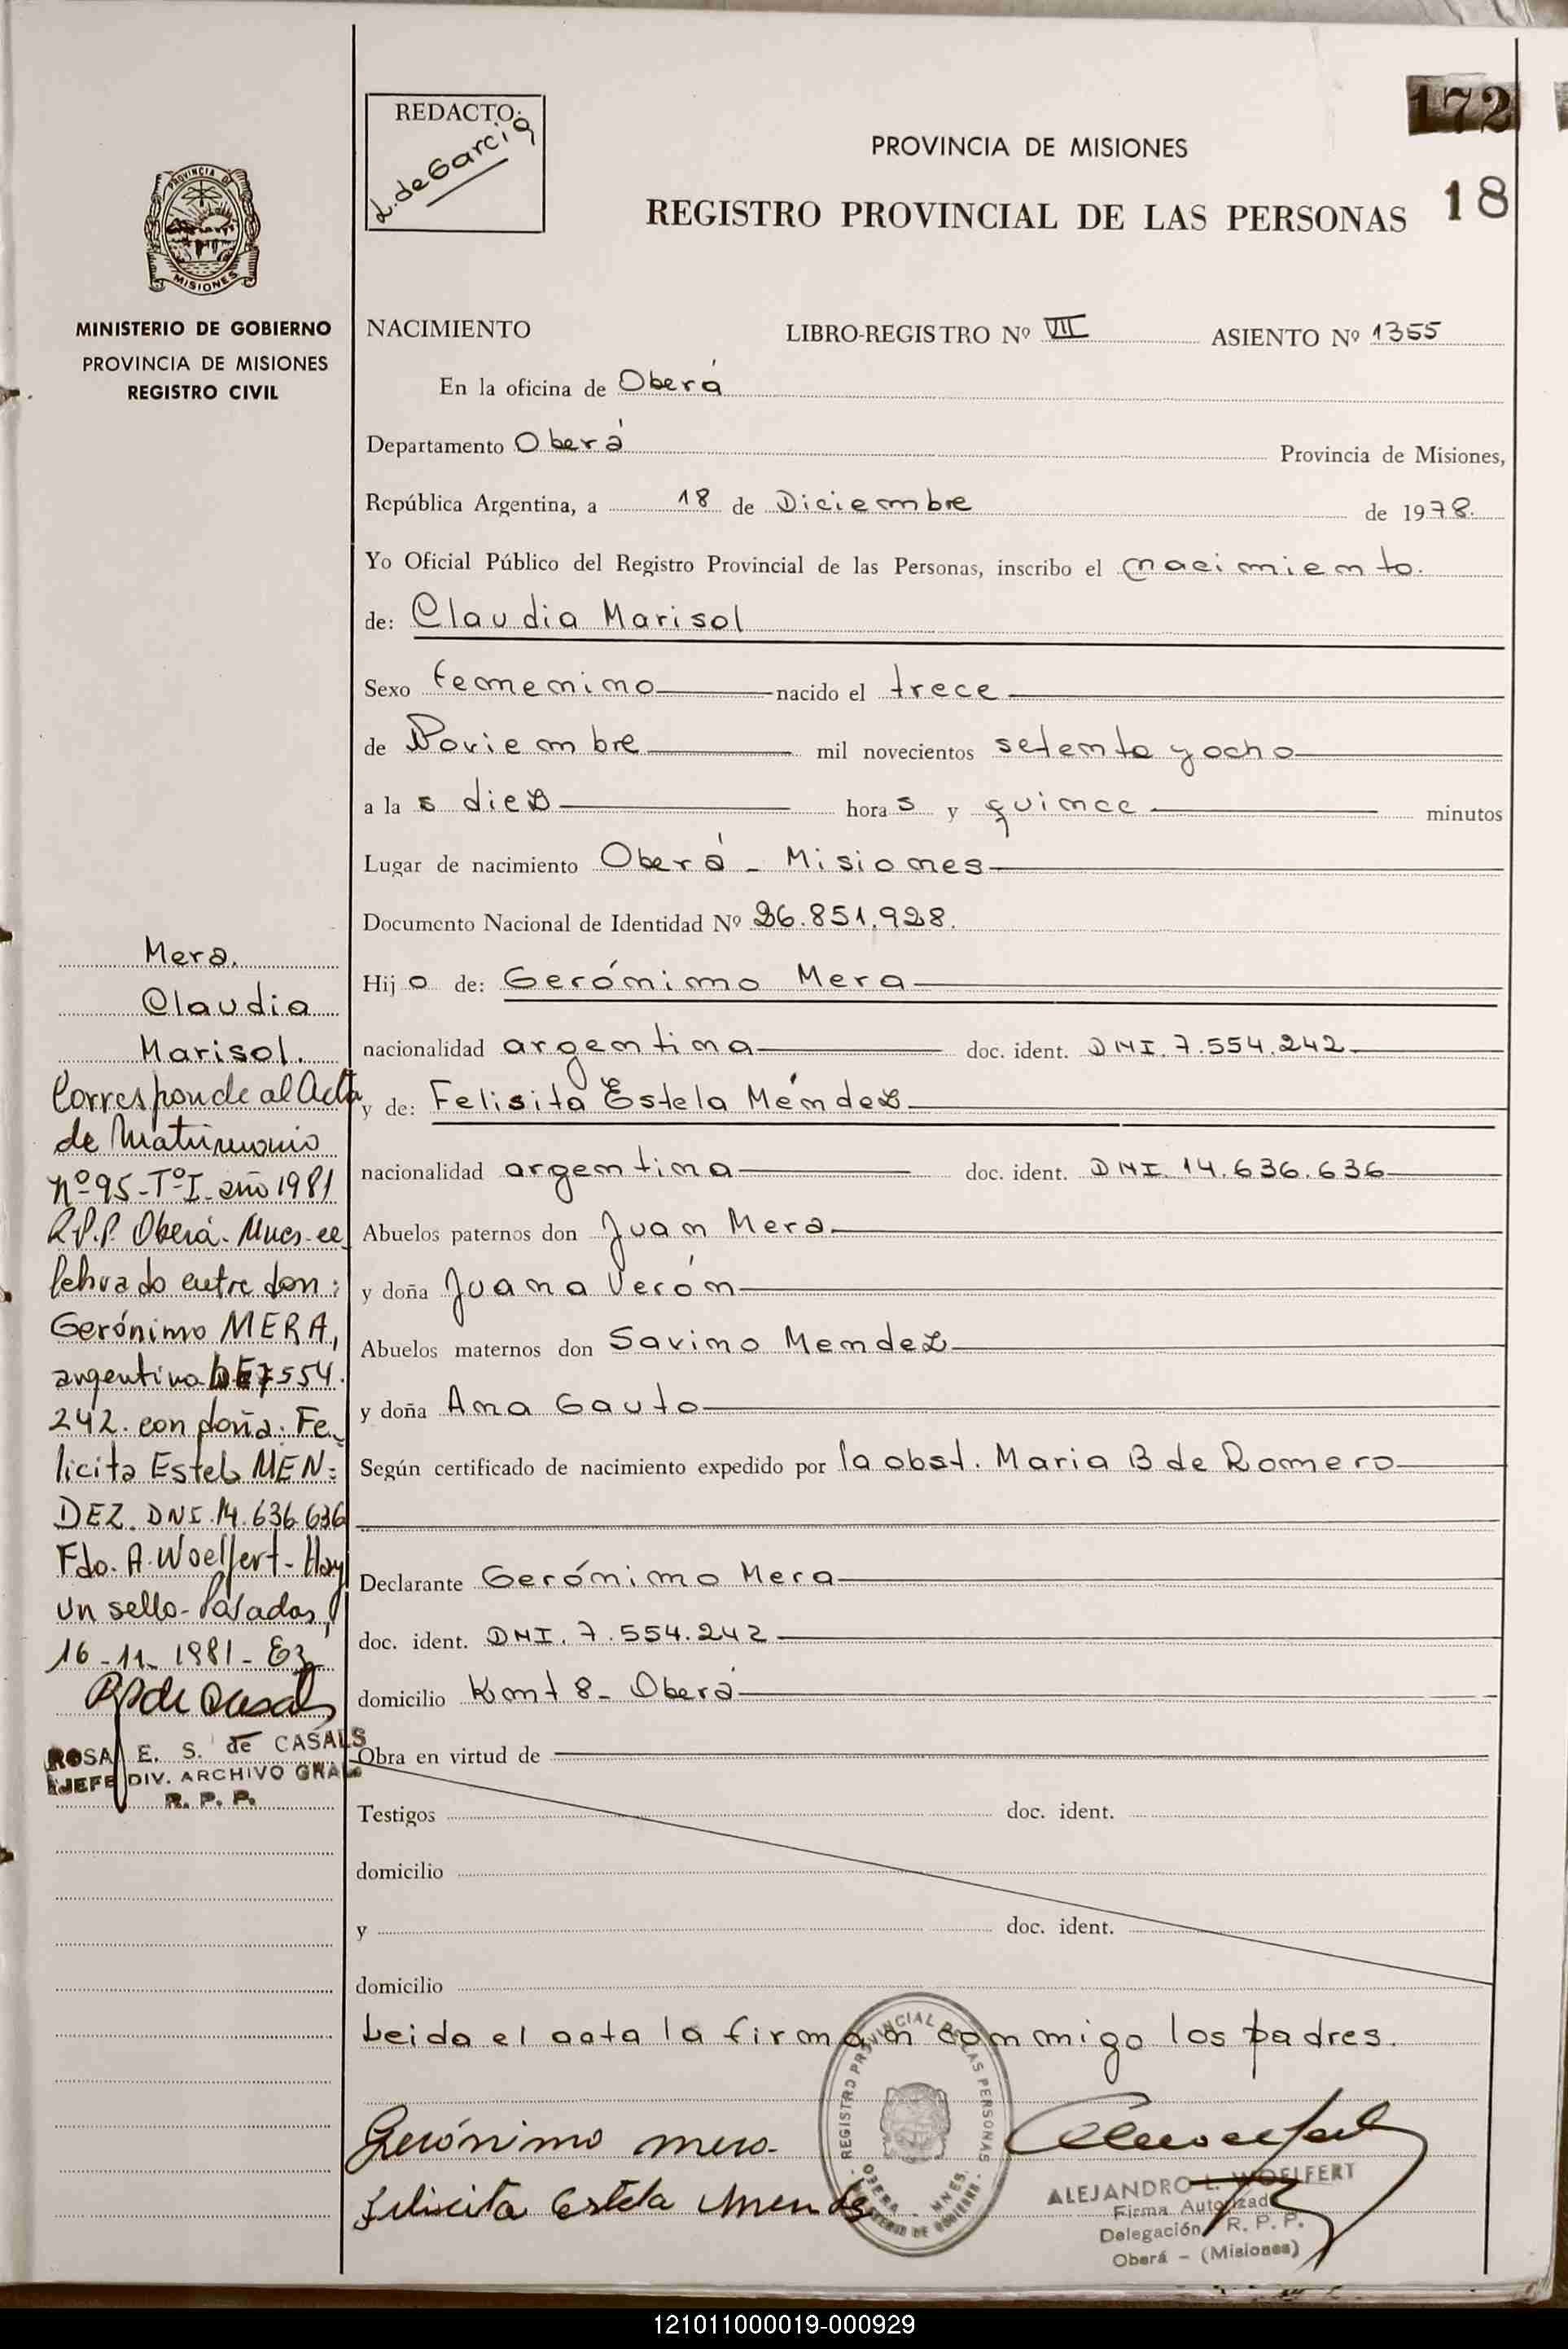 172
18
REDACTO:
L. de Garcia
PROVINCIA DE MISIONES
REGISTRO PROVINCIAL DE LAS PERSONAS
PROVINCIA DE
MISIONES
MINISTERIO DE GOBIERNO
PROVINCIA DE MISIONES
REGISTRO CIVIL
NACIMIENTO LIBRO-REGISTRO Nº VII ASIENTO Nº 1355
En la oficina de Oberá
Departamento Oberá Provincia de Misiones,
República Argentina, a 18 de Diciembre de 1978.
Yo Oficial Público del Registro Provincial de las Personas, inscribo el nacimiento.
de: Claudia Marisol
Sexo femenino nacido el trece
de Noviembre mil novecientos setenta y ocho
a las diez horas y quince minutos
Lugar de nacimiento Oberá - Misiones
Documento Nacional de Identidad Nº 26.851.928.
Hijo de: Gerónimo Mera
nacionalidad argentina doc. ident. DNI. 7.554.242
y de: Felisita Estela Méndez
nacionalidad argentina doc. ident. DNI. 14.636.636
Abuelos paternos don Juan Mera
y doña Juana Verón
Abuelos maternos don Savino Mendez
y doña Ana Gauto
Según certificado de nacimiento expedido por la obst. Maria B de Romero
Declarante Gerónimo Mera
doc. ident. DNI. 7.554.242
domicilio Kmt 8 - Oberá
Obra en virtud de
Testigos doc. ident.
domicilio
y doc. ident.
domicilio
Leida el acta la firman conmigo los padres.
Gerónimo Mera
Felicita Estela Mendez
REGISTRO PROVINCIAL DE LAS PERSONAS
OBERA - MNES.
MINISTERIO DE GOBIERNO
ALEJANDRO L. WOELFERT
Firma Autorizada
Delegación R. P. P.
Oberá - (Misiones)
Mera.
Claudia
Marisol.
Corresponde al Acta
de Matrimonio
nº 95-Tº I- año 1981
R.P.P. Oberá - Mnes. ce
lebrado entre don:
Gerónimo MERA,
argentino 7554.
242. con doña: Fe-
licita Estela MEN-
DEZ. DNI. 14.636.636
Fdo. A. Woelfert - Hay
un sello - Posadas,
16-11-1981-
ROSA E. S. de CASALS
JEFE DIV. ARCHIVO GRAL.
R. P. P.
121011000019-000929